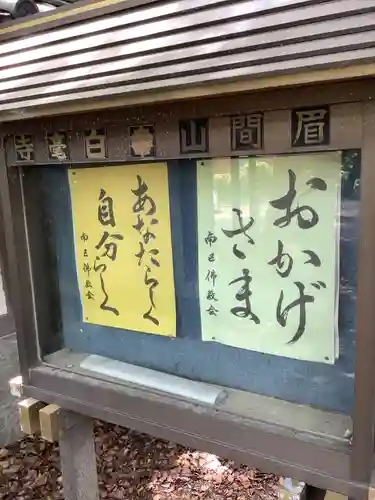 眉間山白毫寺
おかげ
さま
南区佛教会
あなたらく
自分らく
南区佛教会